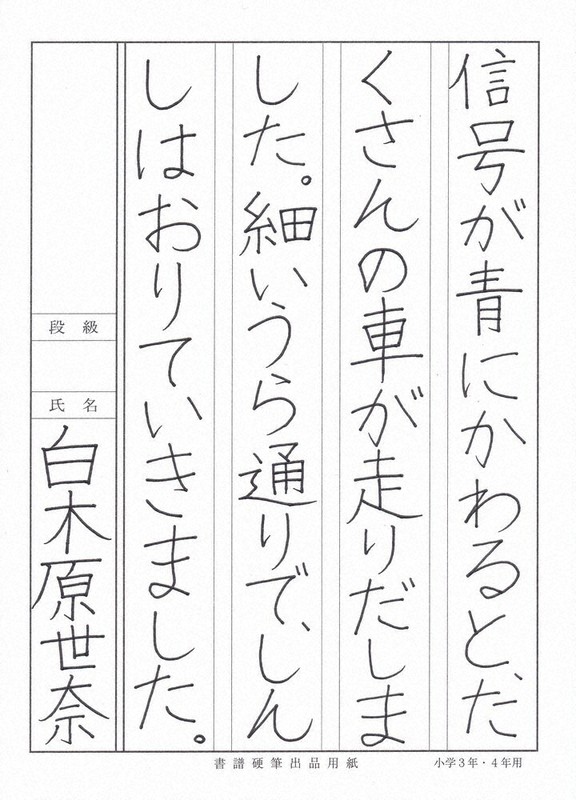 信号が青にかわると、た
くさんの車が走りだしま
した。細いうら通りで、しん
しはおりていきました。
段級
氏名
白木原世奈
書譜硬筆出品用紙
小学3年・4年用